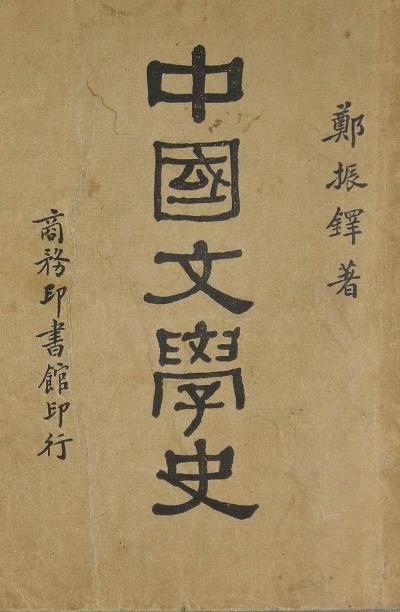 鄭振鐸著
中國文學史
商務印書館印行